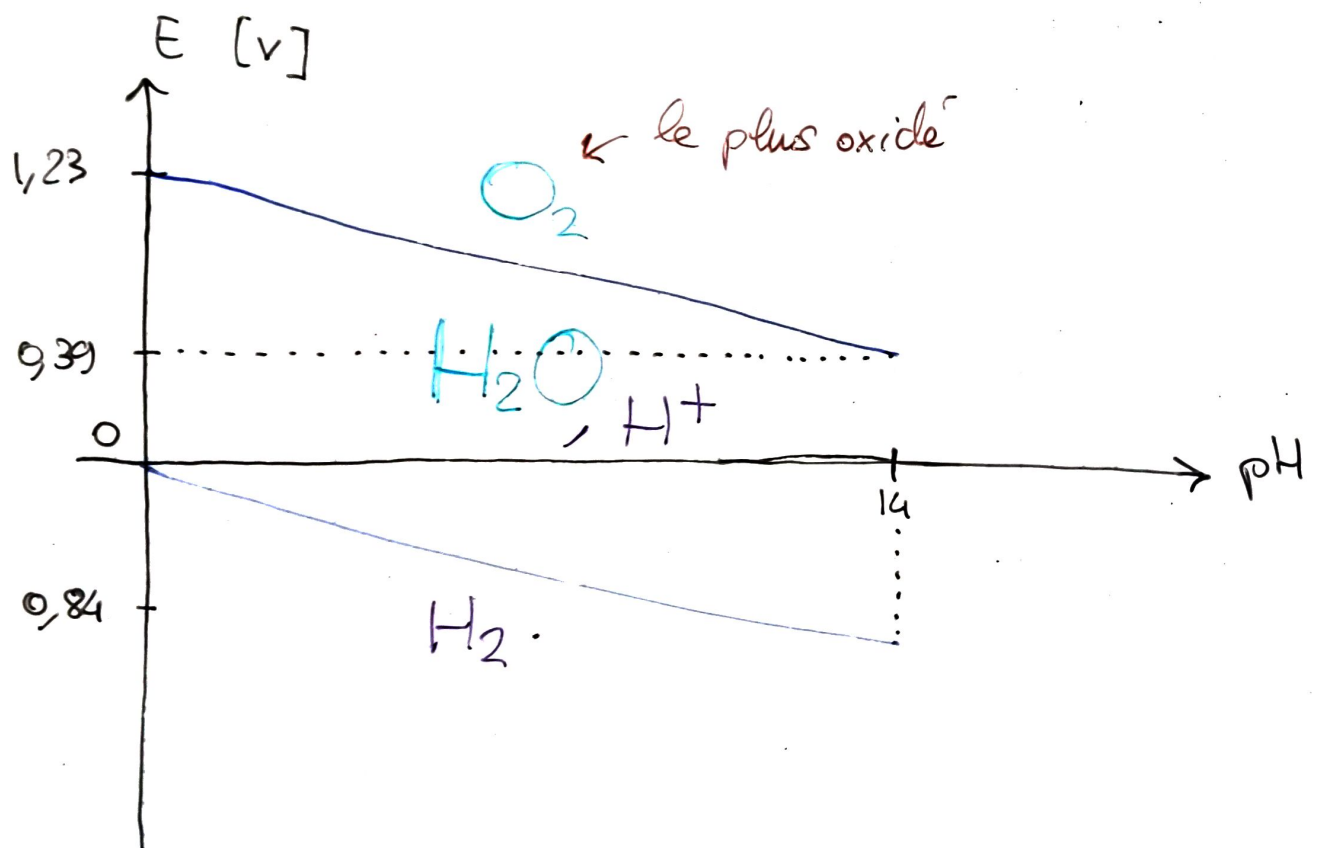 E [V]
← le plus oxidé
1,23
O₂
0,39
H₂O, H⁺
0
pH
14
0,84
H₂.